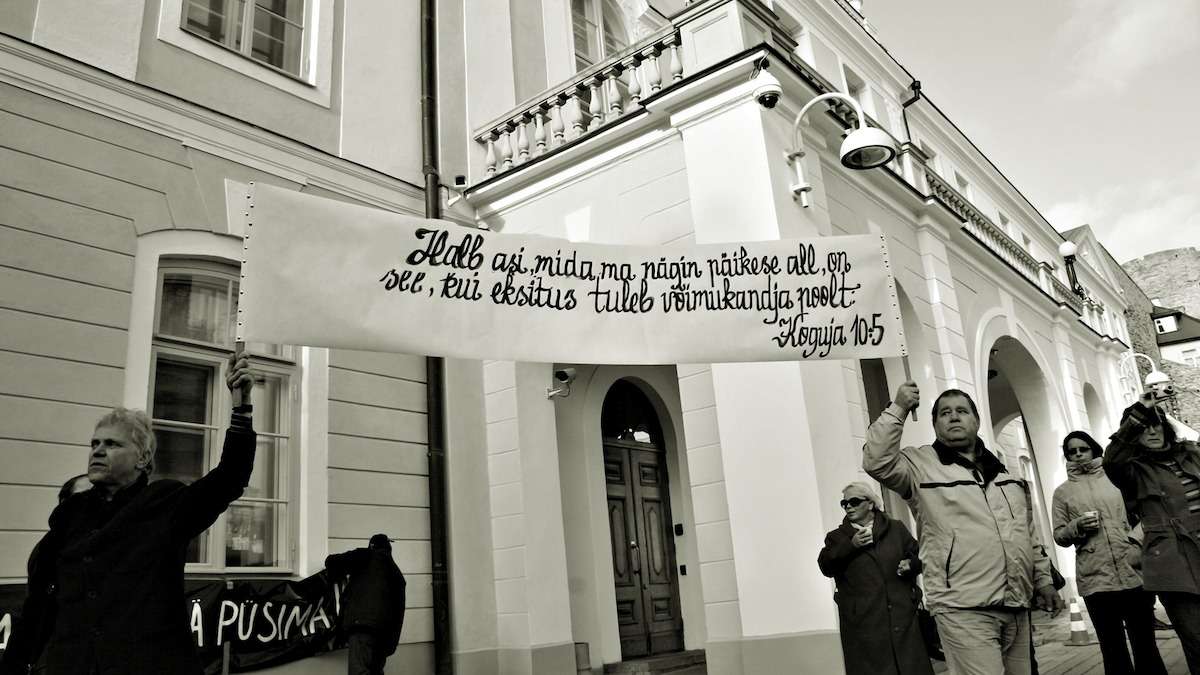 Halb asi, mida ma nägin päikese all, on
see, kui eksitus tuleb võimukandja poolt.
Koguja 10:5
Ä PÜSIMA